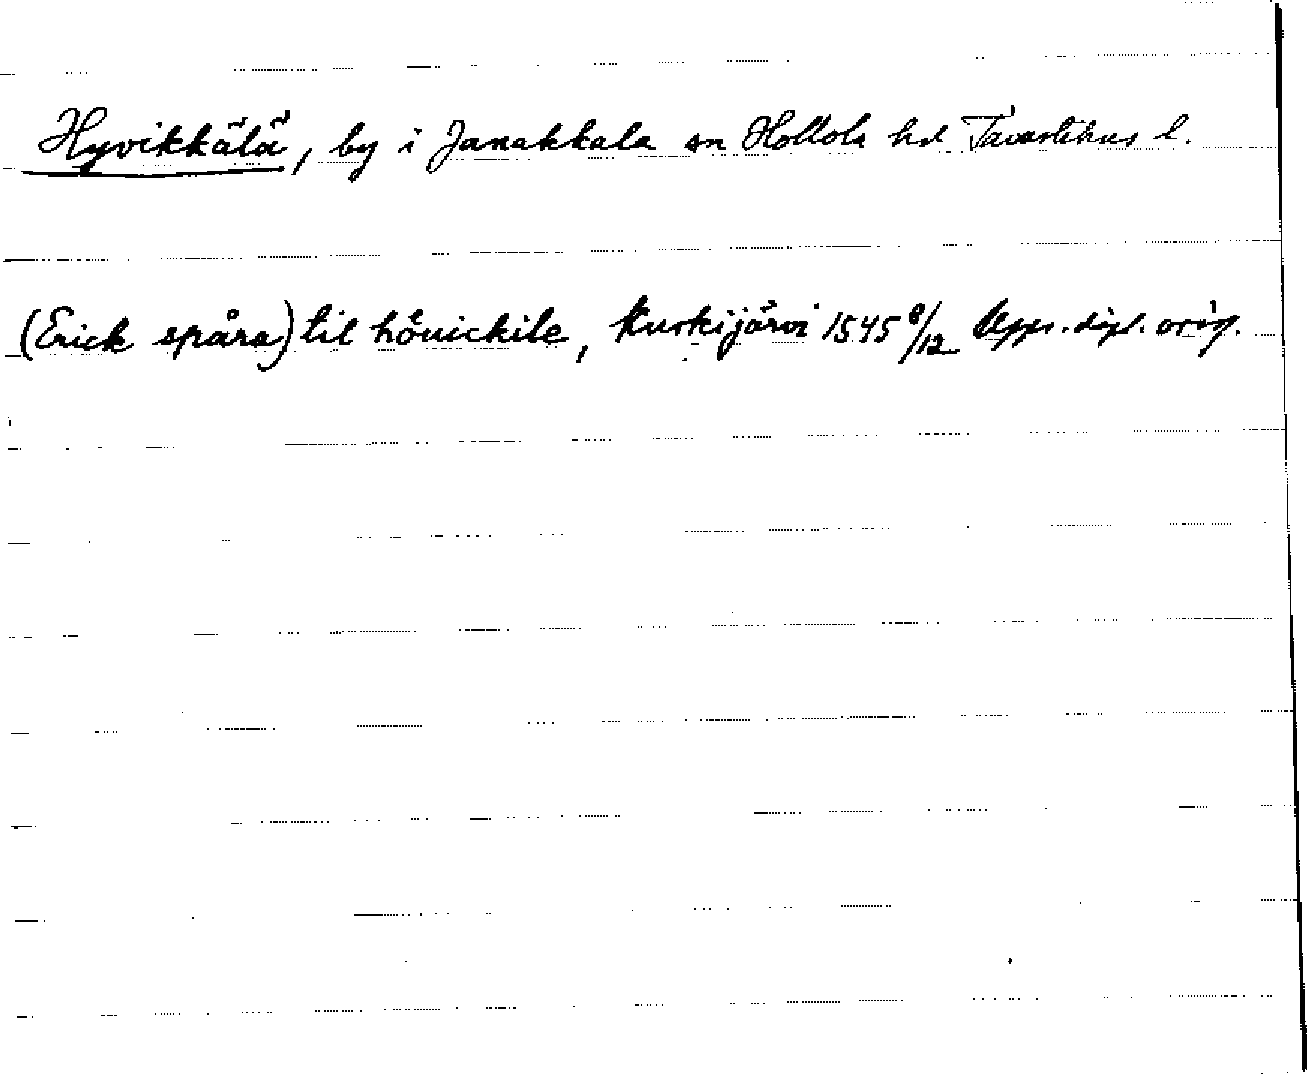 Hyvikkälä, by i Janakkala sn Hollola hd Tavastehus l.
(Erick spåra) til hőuickile, Kurkijärvi 1545 8/12 Upps. dipl. orig.